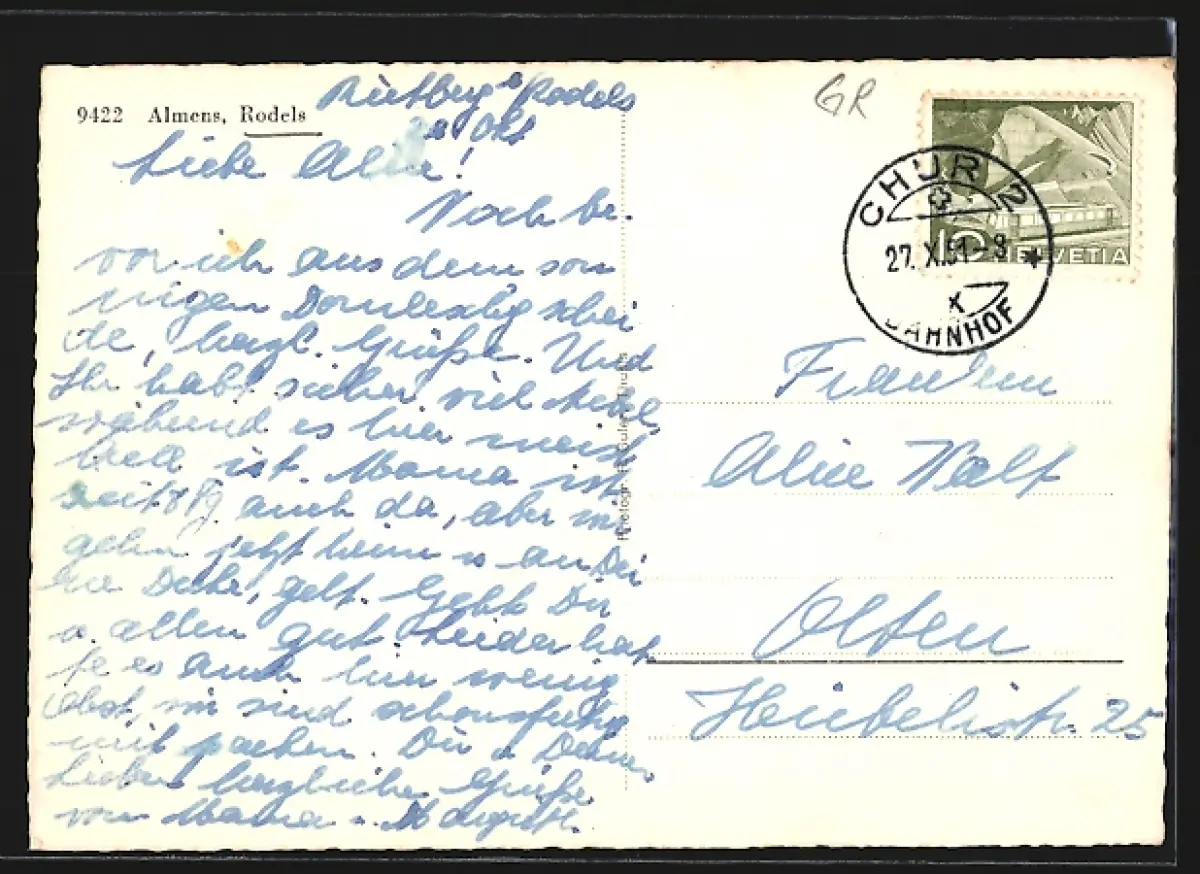 9422 Almens, Rodels
Rietberg Rodels
Okt
Liebe Alice!
Noch be-
vor ich aus dem son
nigen Domleschg schei
de, herzl. Grüße. Und
Ihr habt sicher viel Nebel,
während es hier meist
hell ist. Mama ist
seit 8 Tg. auch da, aber wir
gehen jetzt heim u. an Dei
ne Decke, gelt. Geht's Dir
u. allen gut. Leider hat
te es auch hier wenig
Obst, wir sind schon fertig
mit packen. Dir u Deinen
Lieben herzliche Grüße
von Mama u. Margrit.
GR
CHUR 2
27. X. 51 - 8
BAHNHOF
10 HELVETIA
Fräulein
Alice Wälf
Olten
Hübelistr. 25